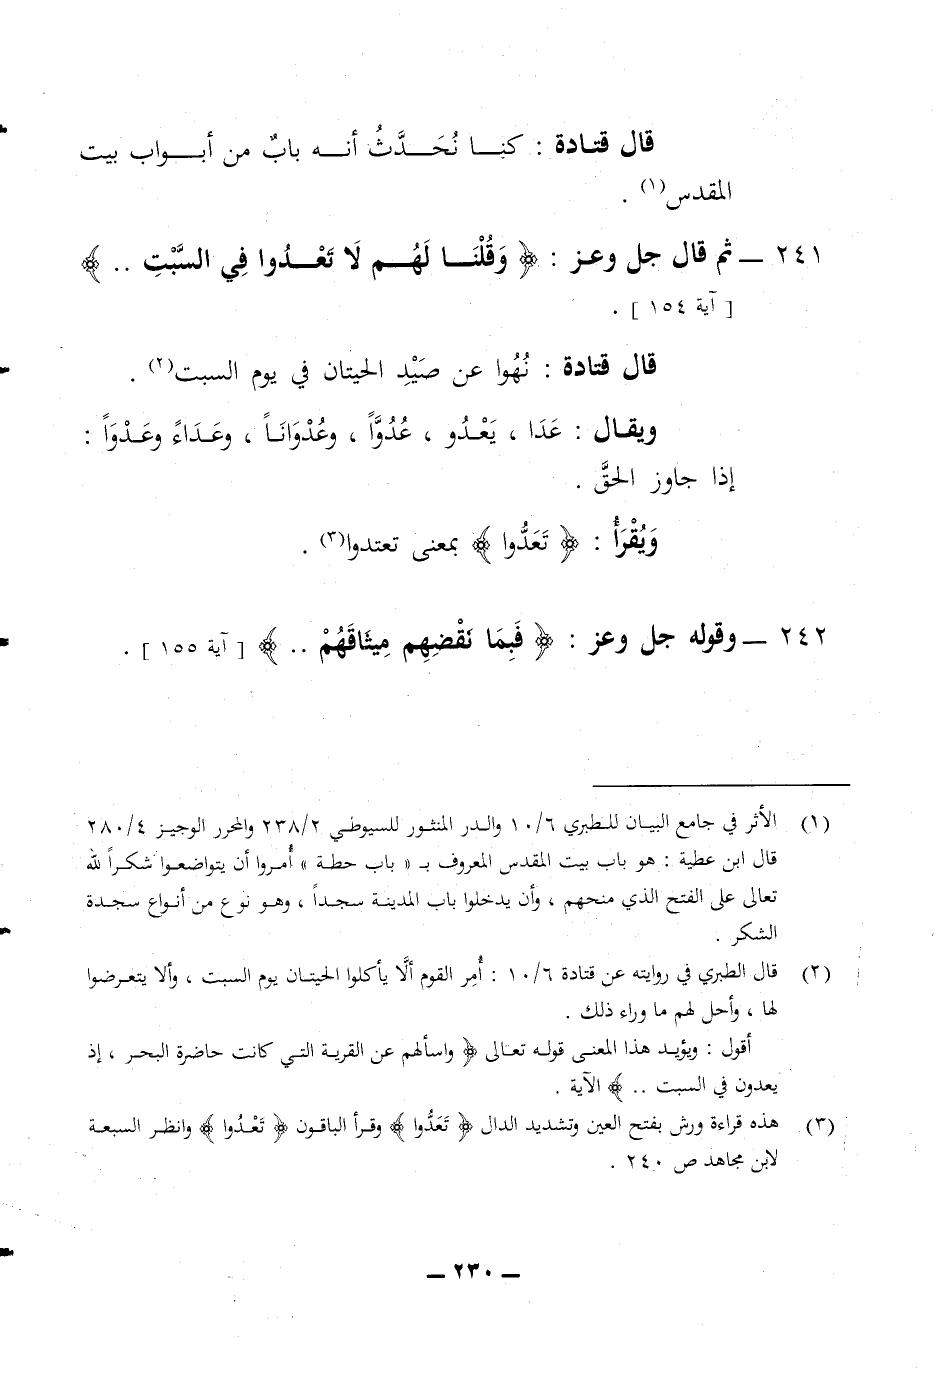 قال قتادة : كنا نُحَدَّثُ أنه بابٌ من أبواب بيت
المقدس(١) .
٢٤١ ــ ثم قال جل وعز : ﴿ وَقُلْنَا لَهُم لَا تَعْدُوا فِي السَّبْتِ .. ﴾
[ آية ١٥٤ ] .
قال قتادة : نُهُوا عن صَيْدِ الحيتان في يوم السبت(٢) .
ويقال : عَدَا ، يَعْدُو ، عُدُوَّاً ، وعُدْوَانَاً ، وعَدَاءً وعَدْوَاً :
إذا جاوز الحقَّ .
وَيُقْرَأُ : ﴿ تَعَدُّوا ﴾ بمعنى تعتدوا(٣) .
٢٤٢ ــ وقوله جل وعز : ﴿ فَبِمَا نَقْضِهِم مِيثَاقَهُمْ .. ﴾ [ آية ١٥٥ ] .
(١) الأثر في جامع البيان للطبري ١٠/٦ والدر المنثور للسيوطي ٢٣٨/٢ والمحرر الوجيز ٢٨٠/٤
قال ابن عطية : هو باب بيت المقدس المعروف بـ « باب حطة » أُمروا أن يتواضعوا شكراً لله
تعالى على الفتح الذي منحهم ، وأن يدخلوا باب المدينة سجداً ، وهو نوع من أنواع سجدة
الشكر .
(٢) قال الطبري في روايته عن قتادة ١٠/٦ : أُمِر القوم ألَّا يأكلوا الحيتان يوم السبت ، وألا يتعرضوا
لها ، وأحل لهم ما وراء ذلك .
أقول : ويؤيد هذا المعنى قوله تعالى ﴿ واسألهم عن القرية التي كانت حاضرة البحر ، إذ
يعدون في السبت .. ﴾ الآية .
(٣) هذه قراءة ورش بفتح العين وتشديد الدال ﴿ تَعَدُّوا ﴾ وقرأ الباقون ﴿ تَعْدُوا ﴾ وانظر السبعة
لابن مجاهد ص ٢٤٠ .
ــ ٢٣٠ ــ